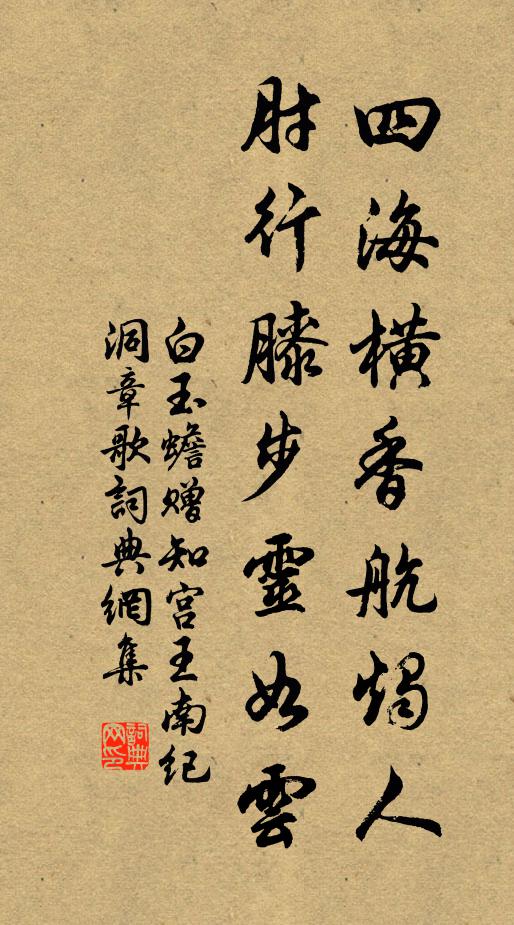 四海橫香航燭人
肘行膝步靈如雲
白玉蟾贈知宮王南紀
洞章歌詞典網集
詞典
网印